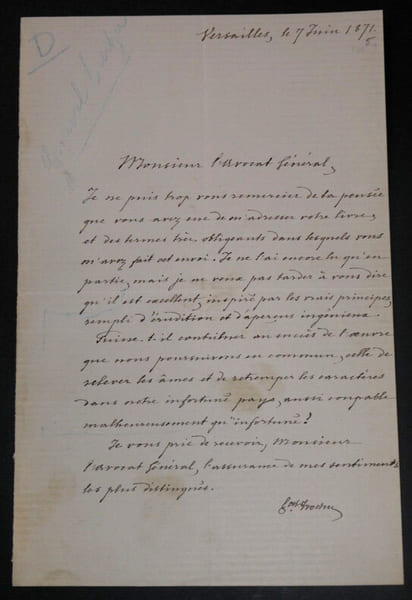 D
Versailles, le 7 Juin 1871.
Monsieur l'Avocat Général,
Je ne puis trop vous remercier de la pensée
que vous avez eue de m'adresser votre livre,
et des termes très obligeants dans lesquels vous
m'avez fait cet envoi. Je ne l'ai encore lu qu'en
partie, mais je ne veux pas tarder à vous dire
qu'il est excellent, inspiré par les vrais principes,
rempli d'érudition et d'aperçus ingénieux.
Puisse-t-il contribuer au succès de l'œuvre
que nous poursuivons en commun, celle de
relever les âmes et de retremper les caractères
dans notre infortuné pays, aussi coupable
malheureusement qu'infortuné!
Je vous prie de recevoir, Monsieur
l'Avocat Général, l'assurance de mes sentiments
les plus distingués.
Gal Trochu